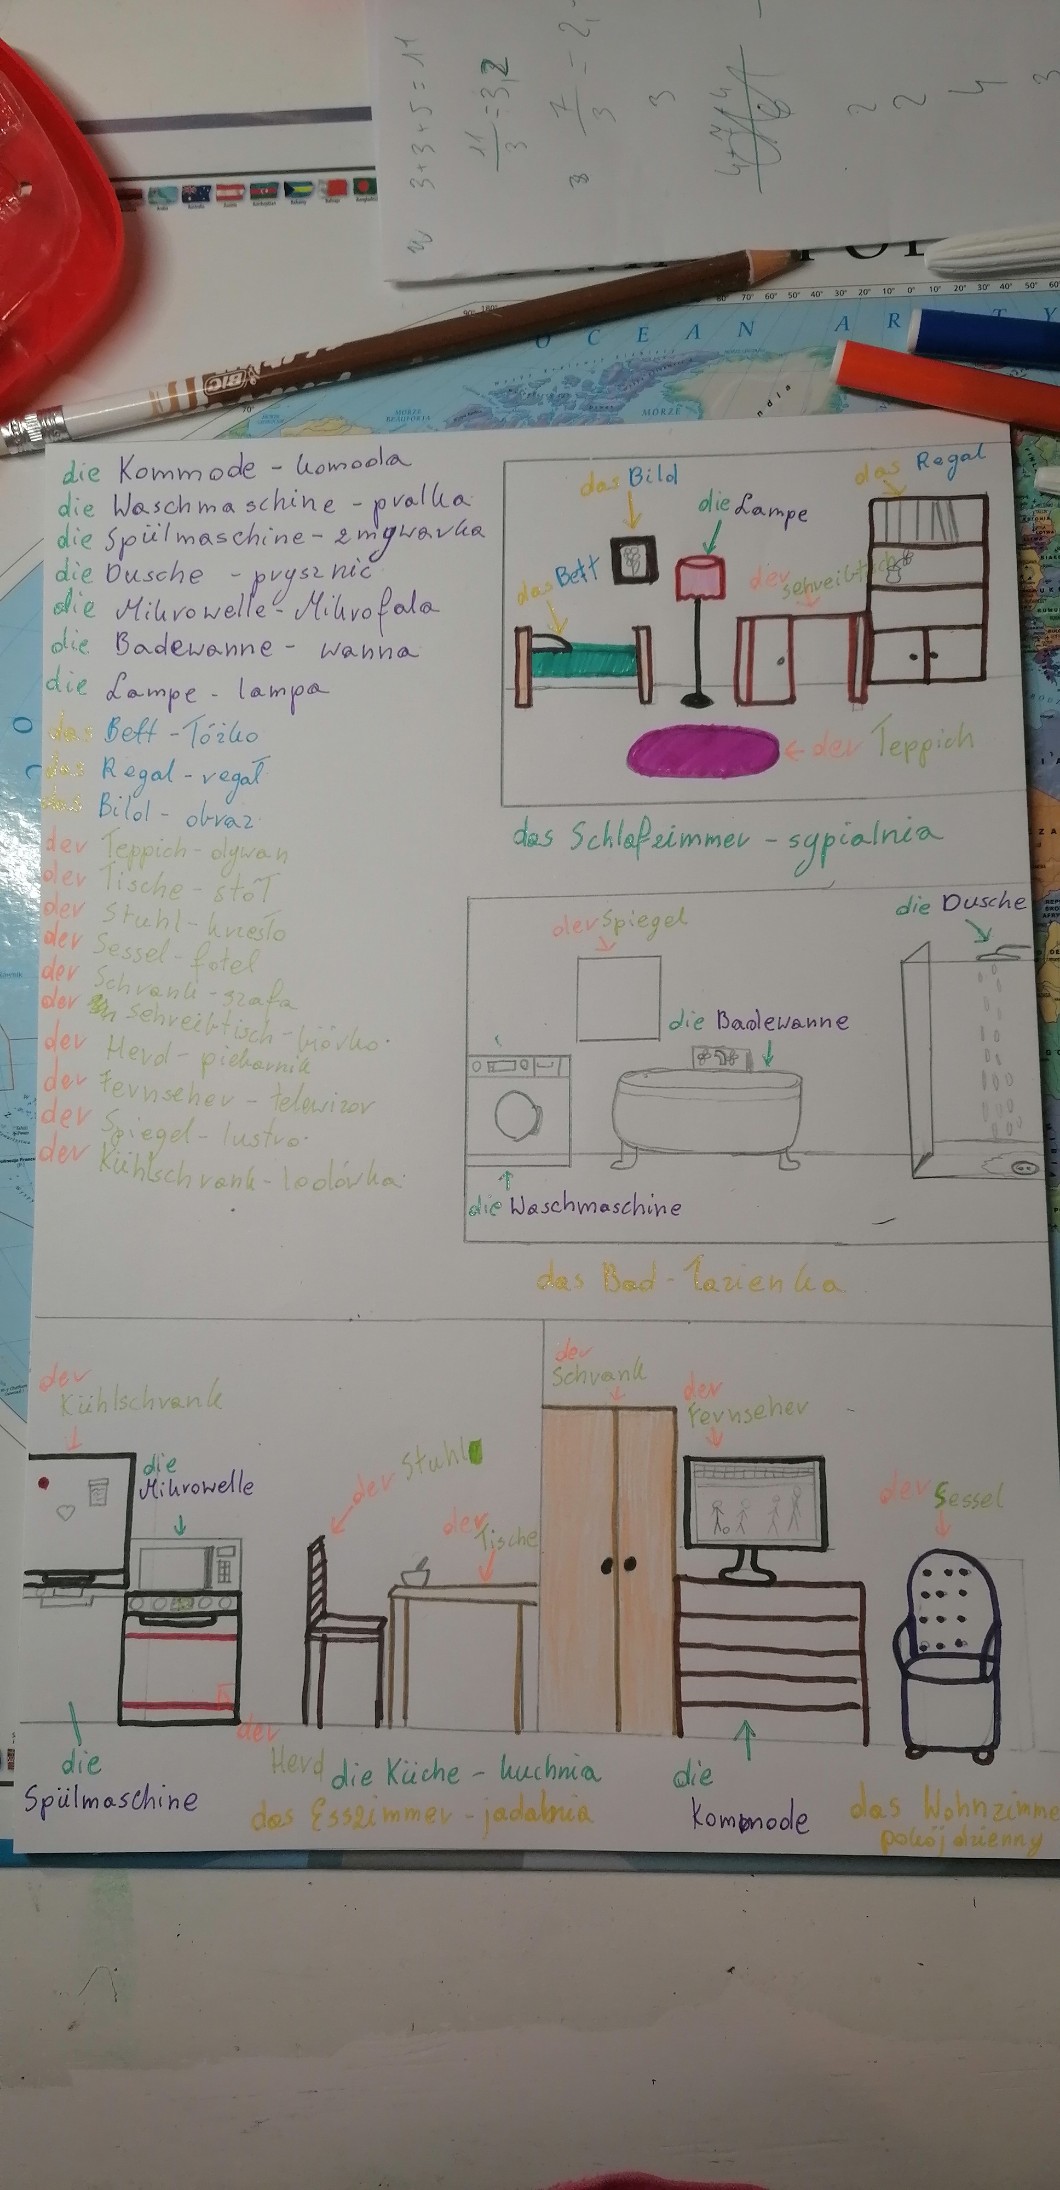 3+3+5=11
11/3=3,2
7/3
3
2
2
4
3
BIC
OCEAN ARKTY
MORZE BEAUFORTA
MORZE
70° 60° 50° 40° 30° 20° 10° 0° 10° 20° 30° 40° 50° 60°
die Kommode - komoda
die Waschmaschine - pralka
die Spülmaschine - zmywarka
die Dusche - prysznic
die Mikrowelle - Mikrofala
die Badewanne - wanna
die Lampe - lampa
das Bett - Tóżko
das Regal - regał
das Bild - obraz
der Teppich - dywan
der Tische - stół
der Stuhl - krzesło
der Sessel - fotel
der Schrank - szafa
der Schreibtisch - biórko.
der Herd - piekarnik
der Fernseher - telewizor
der Spiegel - lustro.
der Kühlschrank - lodówka.
das Bild
das Regal
die Lampe
das Bett
der schreibtisch
der Teppich
das Schlafzimmer - sypialnia
der Spiegel
die Dusche
die Badewanne
die Waschmaschine
das Bad - Łazienka
der Kühlschrank
die Mikrowelle
der Stuhl
der Tische
der Schrank
der Fernseher
der Sessel
die Spülmaschine
der Herd
die Küche - kuchnia
das Esszimmer - jadalnia
die Kommode
das Wohnzimme
pokój dzienny